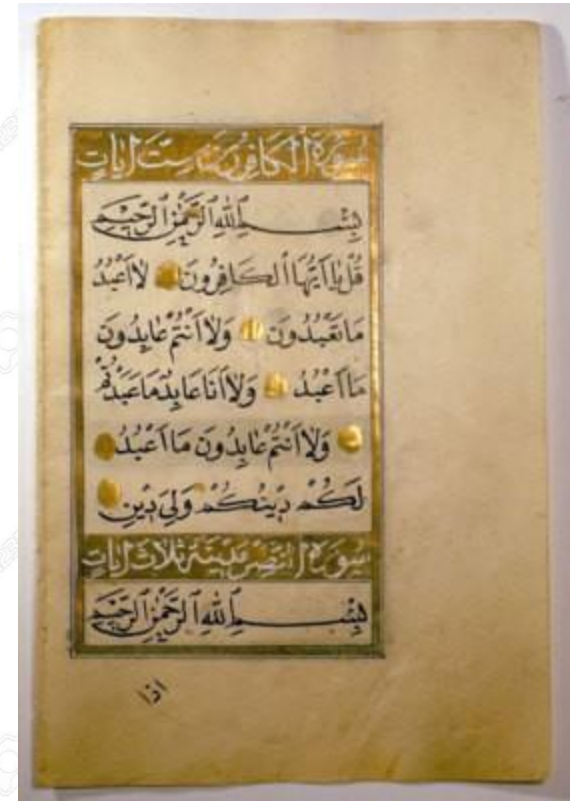 سورة الكافرون ست ايات
بِسْمِ اللهِ الرَّحْمٰنِ الرَّحِيمِ
قُلْ يَا اَيُّهَا الْكَافِرُونَ لَا اَعْبُدُ
مَا تَعْبُدُونَ وَلَا اَنْتُمْ عَابِدُونَ
مَا اَعْبُدُ وَلَا اَنَا عَابِدٌ مَا عَبَدْتُمْ
وَلَا اَنْتُمْ عَابِدُونَ مَا اَعْبُدُ
لَكُمْ دِينُكُمْ وَلِيَ دِينِ
سورة النصر مدينة ثلاث ايات
بِسْمِ اللهِ الرَّحْمٰنِ الرَّحِيمِ
اذا